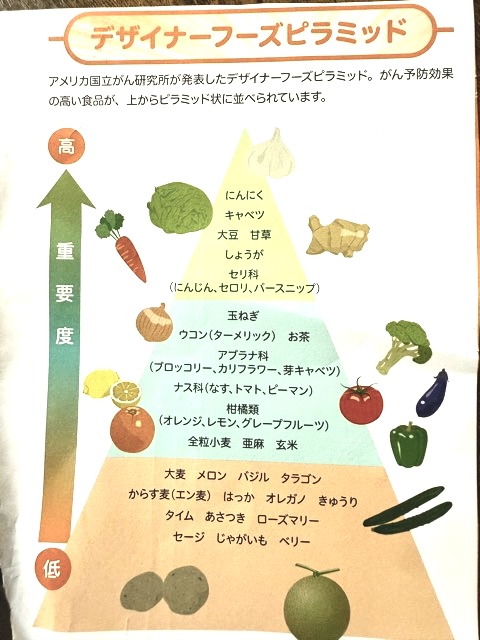 デザイナーフーズピラミッド
アメリカ国立がん研究所が発表したデザイナーフーズピラミッド。がん予防効果
の高い食品が、上からピラミッド状に並べられています。
高
重要度
低
にんにく
キャベツ
大豆 甘草
しょうが
セリ科
(にんじん、セロリ、パースニップ)
玉ねぎ
ウコン(ターメリック) お茶
アブラナ科
(ブロッコリー、カリフラワー、芽キャベツ)
ナス科(なす、トマト、ピーマン)
柑橘類
(オレンジ、レモン、グレープフルーツ)
全粒小麦 亜麻 玄米
大麦 メロン バジル タラゴン
からす麦(エン麦) はっか オレガノ きゅうり
タイム あさつき ローズマリー
セージ じゃがいも ベリー